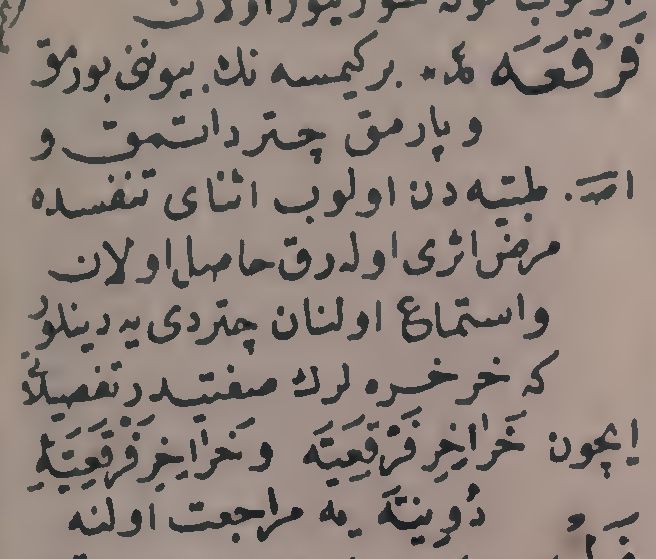 فَرْقَعَه مص. بر كيمسه نك بيوننى بورمق
و پارمق چتردا‌تمق و
اص. طبيه دن اولوب اثناى تنفسده
مرض اثرى اوله رق حاصل اولان
واستماع اولنان چتردى يه دينلور
كه خرخره لرك صفتيدر تفصيلا
ايچون خَرَاخِرِ فَرْقَعِيَّه وخَرَاخِرِ فَرْقَعِيَّهٔ
دُوَيْنِيَّه يه مراجعت اولنه